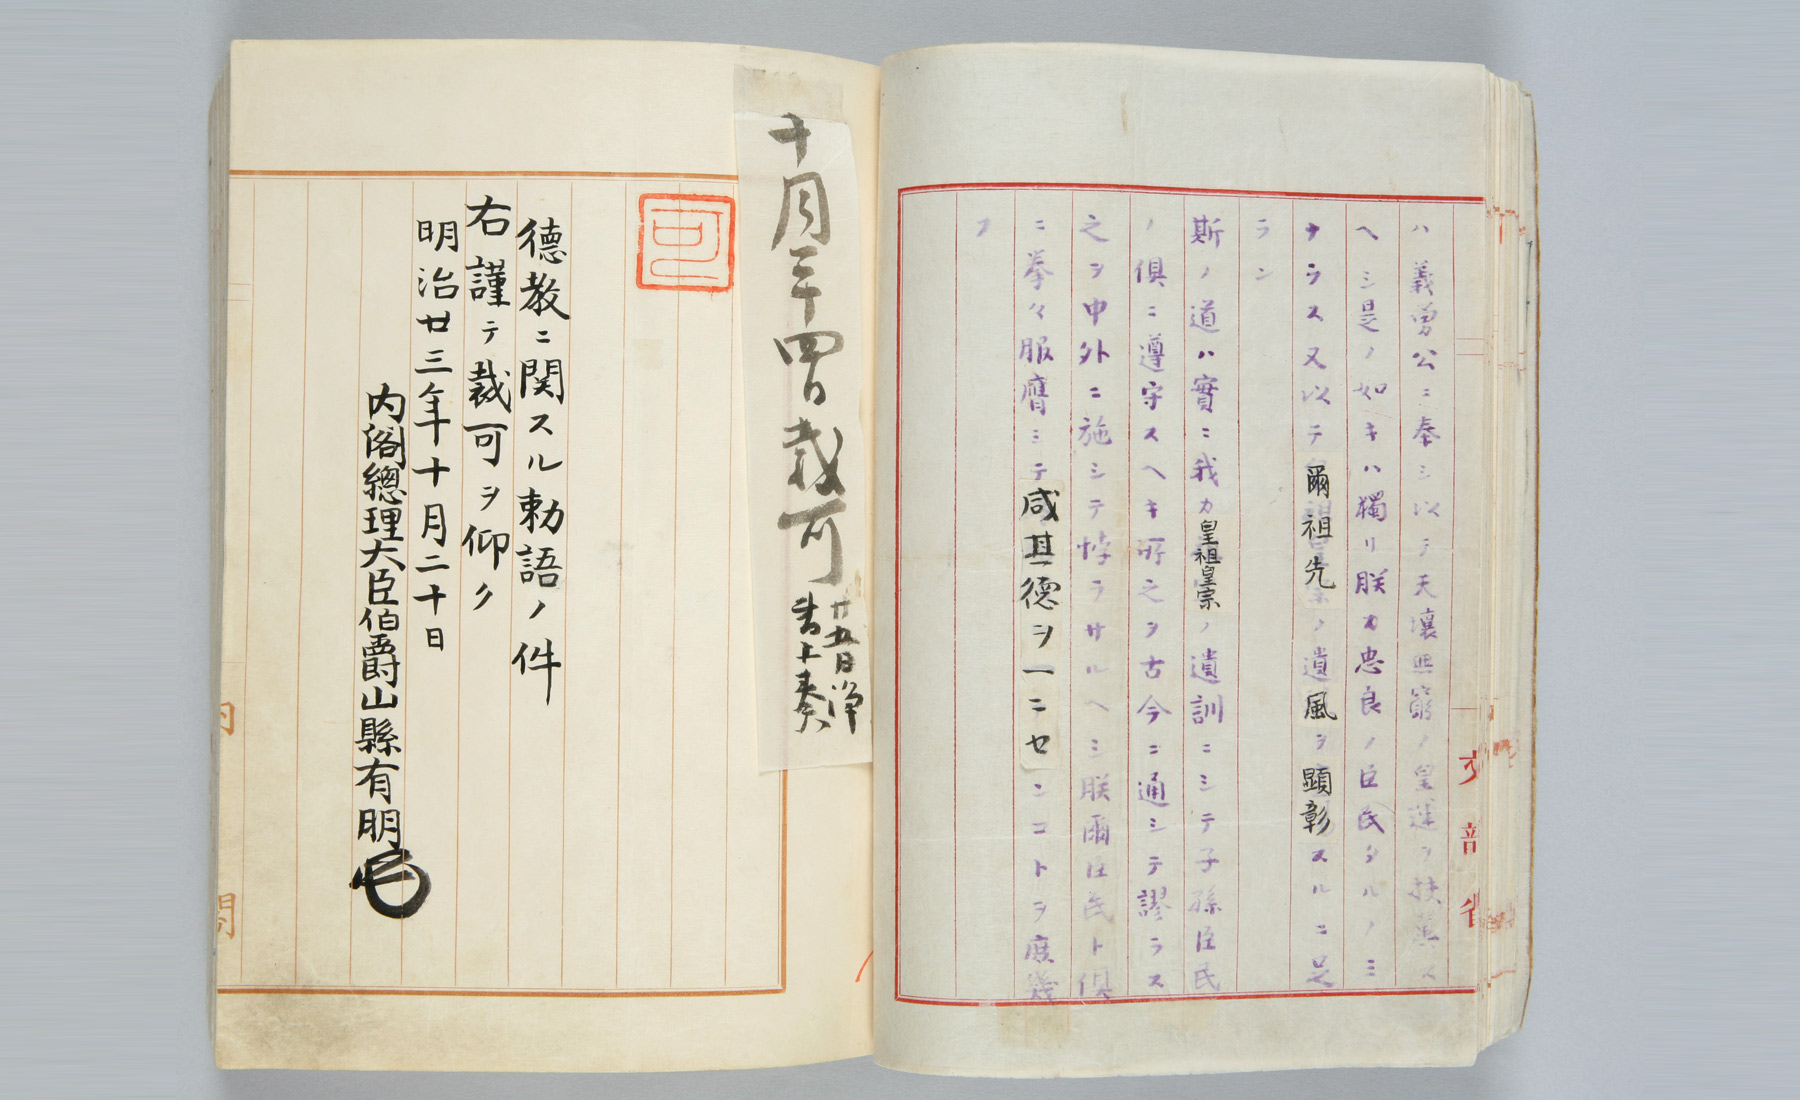 ハ義勇公ニ奉シ以テ天壤無窮ノ皇運ヲ扶翼ス
ヘシ是ノ如キハ獨リ朕カ忠良ノ臣民タルノミ
ナラス又以テ爾祖先ノ遺風ヲ顯彰スルニ足
ラン
斯ノ道ハ實ニ我カ皇祖皇宗ノ遺訓ニシテ子孫臣民
ノ倶ニ遵守スヘキ所之ヲ古今ニ通シテ謬ラス
之ヲ中外ニ施シテ悖ラサルヘシ朕爾臣民ト倶
ニ拳々服膺シテ咸其德ヲ一ニセンコトヲ庶幾
フ
文部省
十月二十四日裁可
廿五日浄
書上奏
可
德教ニ関スル勅語ノ件
右謹テ裁可ヲ仰ク
明治廿三年十月二十日
内閣總理大臣伯爵山縣有朋
内閣